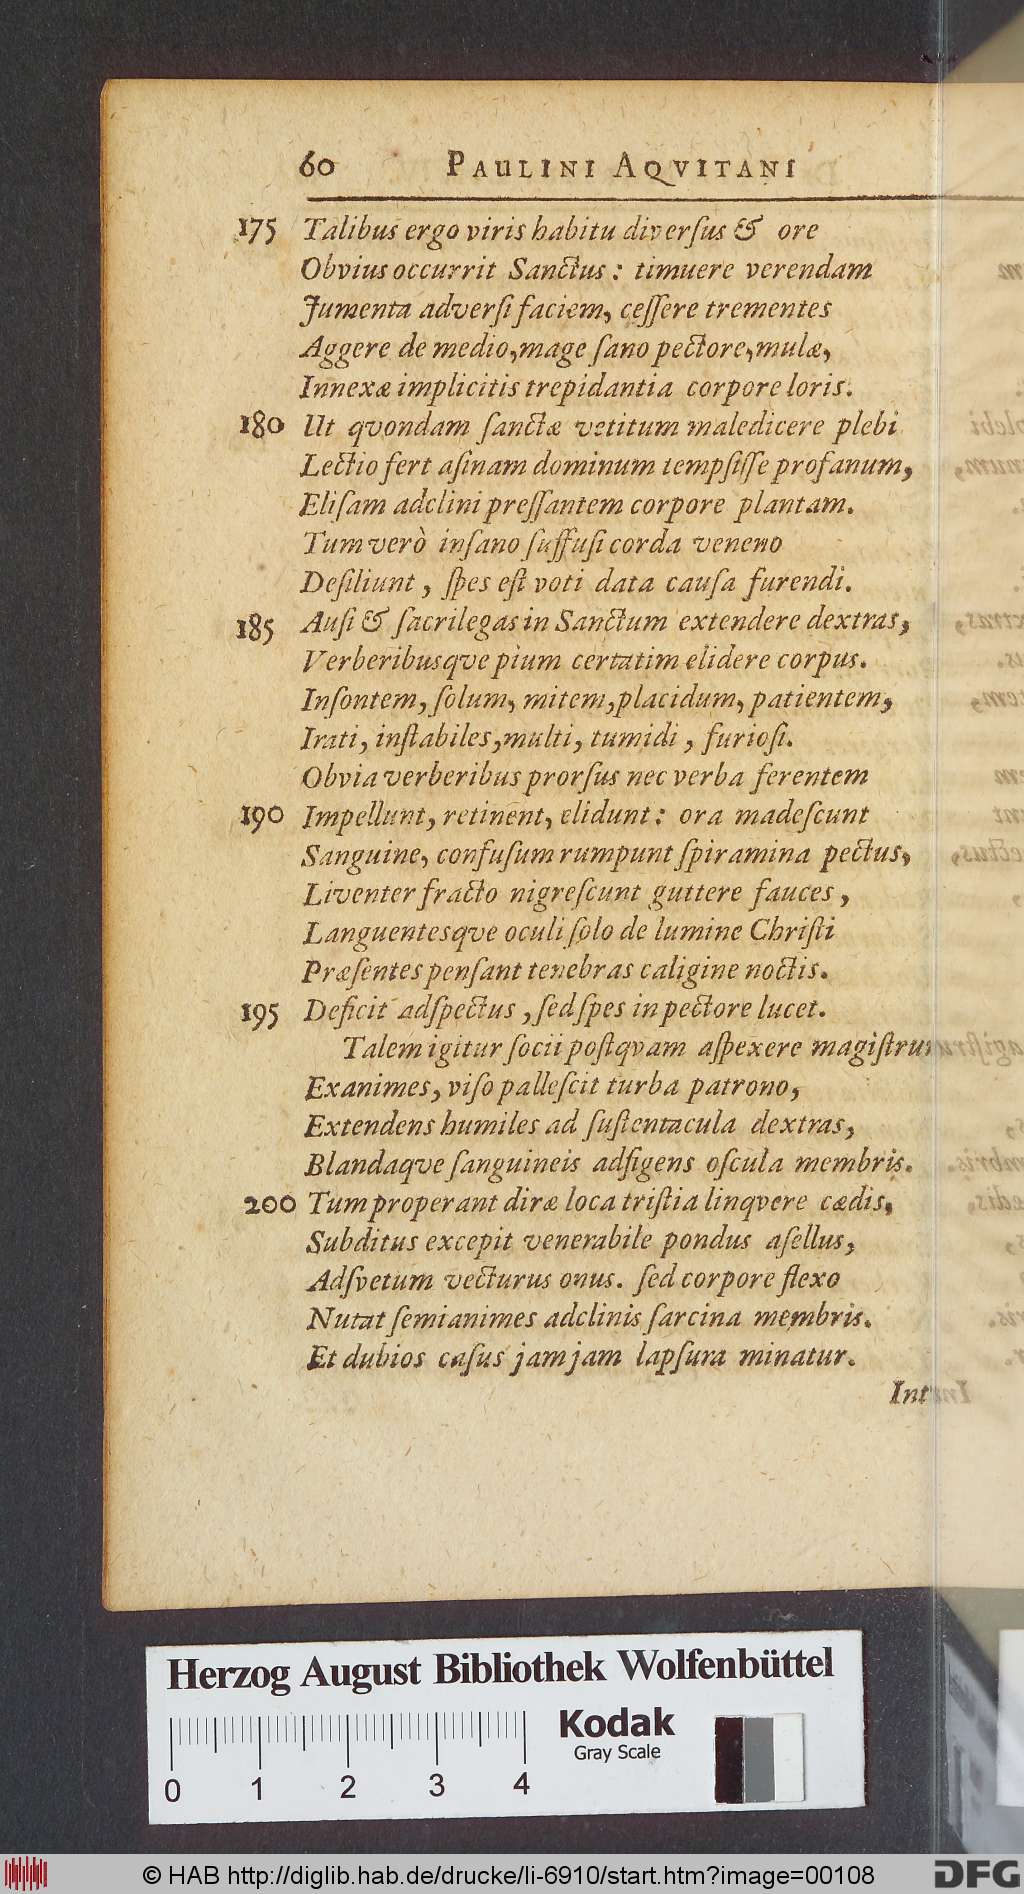 60 PAULINI AQVITANI
175 Talibus ergo viris habitu diverſus & ore
Obvius occurrit Sanctus: timuere verendam
Jumenta adverſi faciem, ceſſere trementes
Aggere de medio, mage ſano pectore, mulæ,
Innexæ implicitis trepidantia corpore loris.
180 Ut qvondam ſanctæ vetitum maledicere plebi
Lectio fert aſinam dominum tempſiſſe profanum,
Eliſam adclini preſſantem corpore plantam.
Tum verò inſano ſuffuſi corda veneno
Deſiliunt, ſpes eſt voti data cauſa furendi.
185 Auſi & ſacrilegas in Sanctum extendere dextras,
Verberibusqve pium certatim elidere corpus.
Inſontem, ſolum, mitem, placidum, patientem,
Irati, inſtabiles, multi, tumidi, furioſi.
Obvia verberibus prorſus nec verba ferentem
190 Impellunt, retinent, elidunt: ora madeſcunt
Sanguine, confuſum rumpunt ſpiramina pectus,
Liventer fracto nigreſcunt guttere fauces,
Languentesqve oculi ſolo de lumine Chriſti
Præſentes penſant tenebras caligine noctis.
195 Deficit adſpectus, ſed ſpes in pectore lucet.
Talem igitur ſocii poſtqvam aſpexere magiſtrum
Exanimes, viſo palleſcit turba patrono,
Extendens humiles ad ſuſtentacula dextras,
Blandaqve ſanguineis adfigens oſcula membris.
200 Tum properant diræ loca triſtia linqvere cædis,
Subditus excepit venerabile pondus aſellus,
Adſvetum vecturus onus. ſed corpore flexo
Nutat ſemianimes adclinis ſarcina membris.
Et dubios caſus jam jam lapſura minatur.
Int
Herzog August Bibliothek Wolfenbüttel
Kodak
Gray Scale
0 1 2 3 4
© HAB http://diglib.hab.de/drucke/li-6910/start.htm?image=00108
DFG